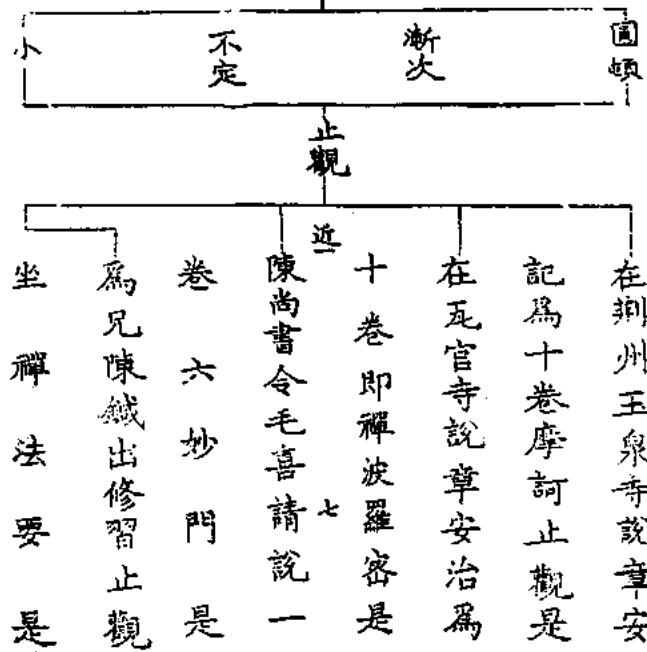 圓頓
漸次
不定
小
止觀
在荆州玉泉寺說章安
記爲十卷摩訶止觀是
在瓦官寺說章安治爲
十卷即禪波羅密是
近
七
陳尚書令毛喜請說一
卷六妙門是
爲兄陳鍼出修習止觀
坐禪法要是